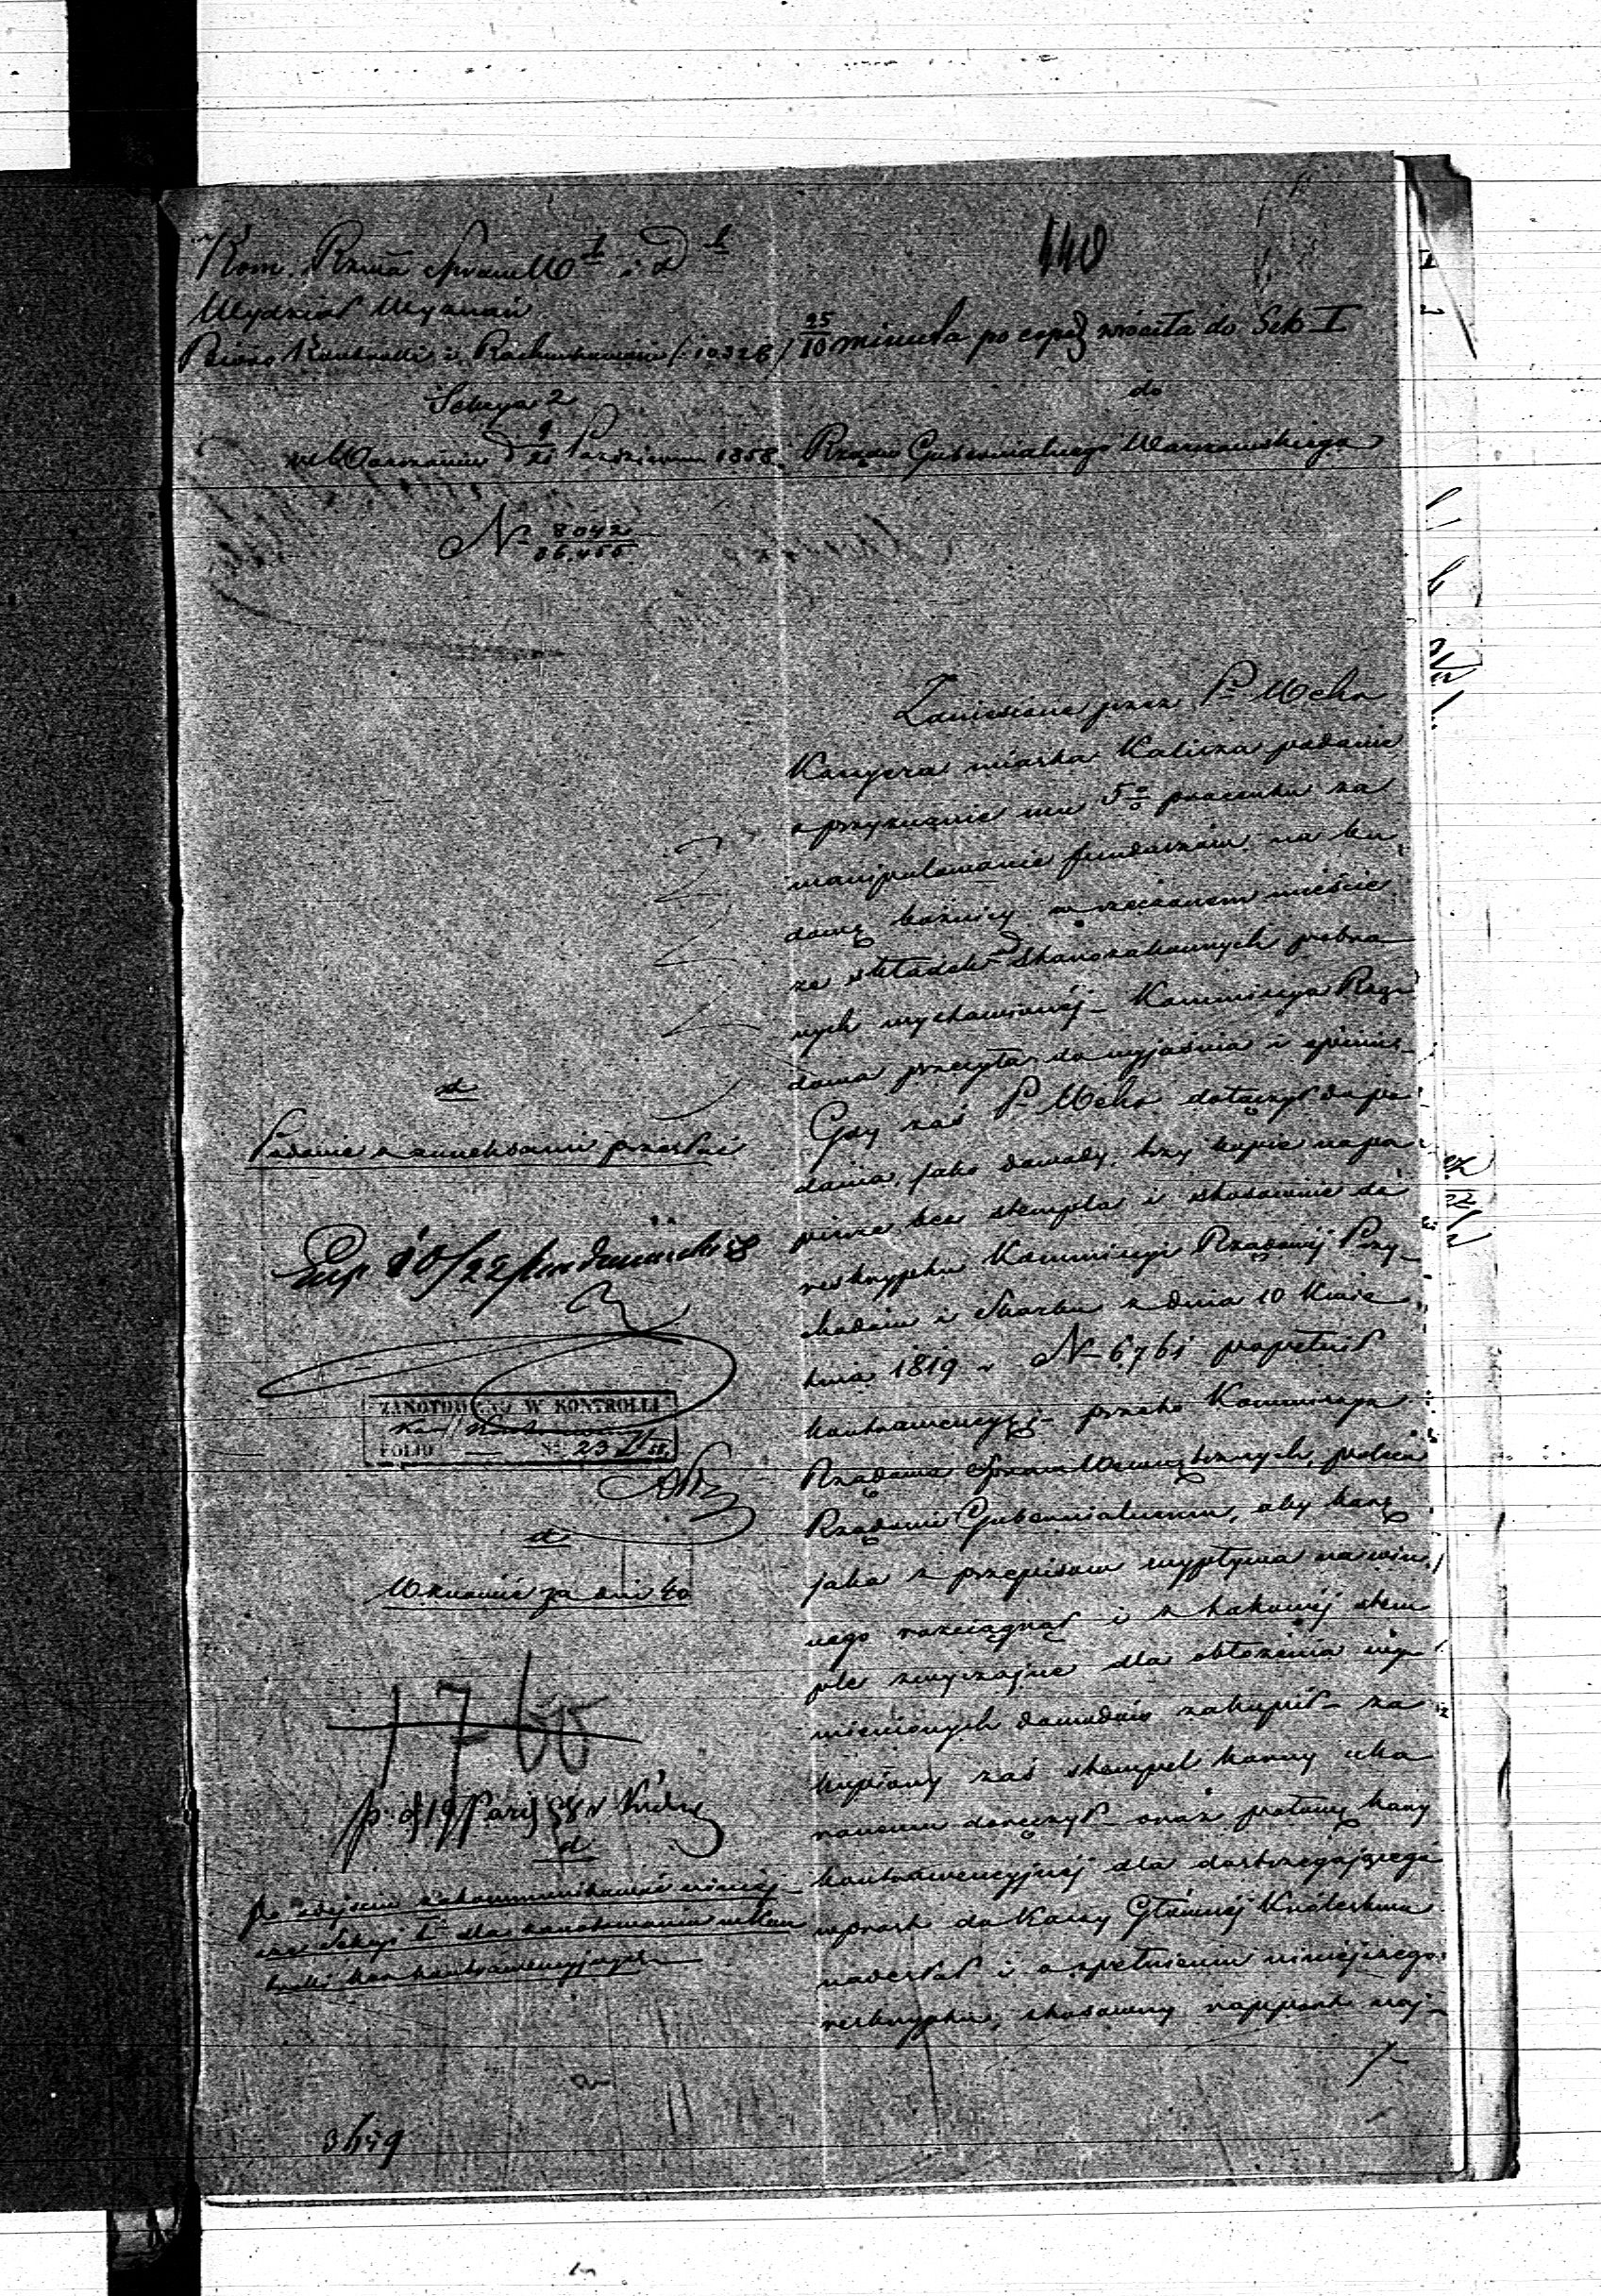 440
Kom. Rzdwa Spraw W^h i D^h
Wydział Wyznań
Bióro Kontrolli i Rachunkowości /10328/
Sekcya 2
w Warszawie d 9/21 Październ 1858
N 8042
25/10 minuta po expedj wróciła do Sek I
do
Rządu Gubernialnego Warszawskiego
Zaniesione przez P. Weha
Kassyera miasta Kalisza podanie
o przyznanie mu 5% procentu za
manipulowanie funduszów na bu
dowę bóżnicy w rzeczonem mieście
ze składek Starozakonnych pobra
nych wystawionéj - Kommissya Rzą
dowa przesyła do wyjaśnia i opinii -
Gdy zaś P. Weha dołączył do po
dania, jako dowody, trzy kopie na pa
pierze bez stempla i stosownie do
reskryptu Kommissyi Rządowéj Przy
chodów i Skarbu z dnia 10 Kwie
tnia 1819 r N 6761 popełnił
kontrawencyą - przeto Kommissya
Rządowa Spraw Wewnętrznych, poleca
Rządowi Gubernialnemu, aby karę
jaka z przepisów wypływa na win
nego rozciągnął i z takowéj stem
ple zwyczajne dla obłożenia wy
mienionych dowodów zakupił - za
kupiony zaś stempel karny uka
ranemu doręczył - oraz połowę kary
kontrawencyjnéj dla dostrzegającego
wprost do Kassy Głównéj Królestwa
nadesłał i o spełnieniu niniejszego
reskryptu, stosowny rapport zło
d
Podanie z annexami przesłać
Exp 10/22
ZANOTOWANO W KONTROLLI
FOLIO N 23
d
Wznowić za dni 40
1760
d
Po wyjściu zakommunikować niniej
sze Sekcyi I dla zanotowania w Kon
trolli kar kontrawencyjnych
3459